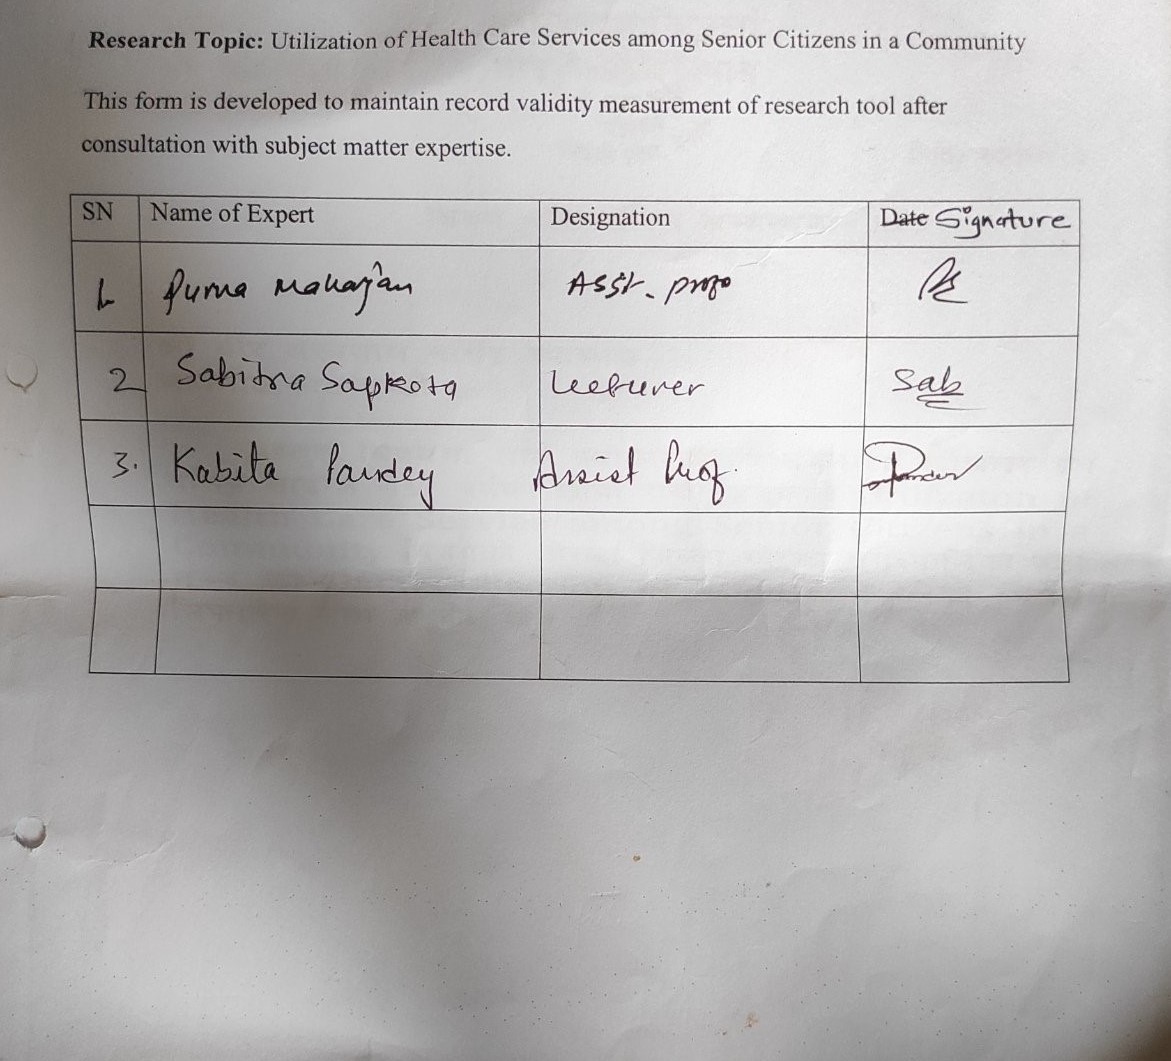 Research Topic: Utilization of Health Care Services among Senior Citizens in a Community
This form is developed to maintain record validity measurement of research tool after
consultation with subject matter expertise.
SN Name of Expert Designation Date Signature
1. Purna Maharjan Asst. prof. 
2 Sabitra Sapkota Lecturer Sab
3. Kabita Pandey Assist Prof.